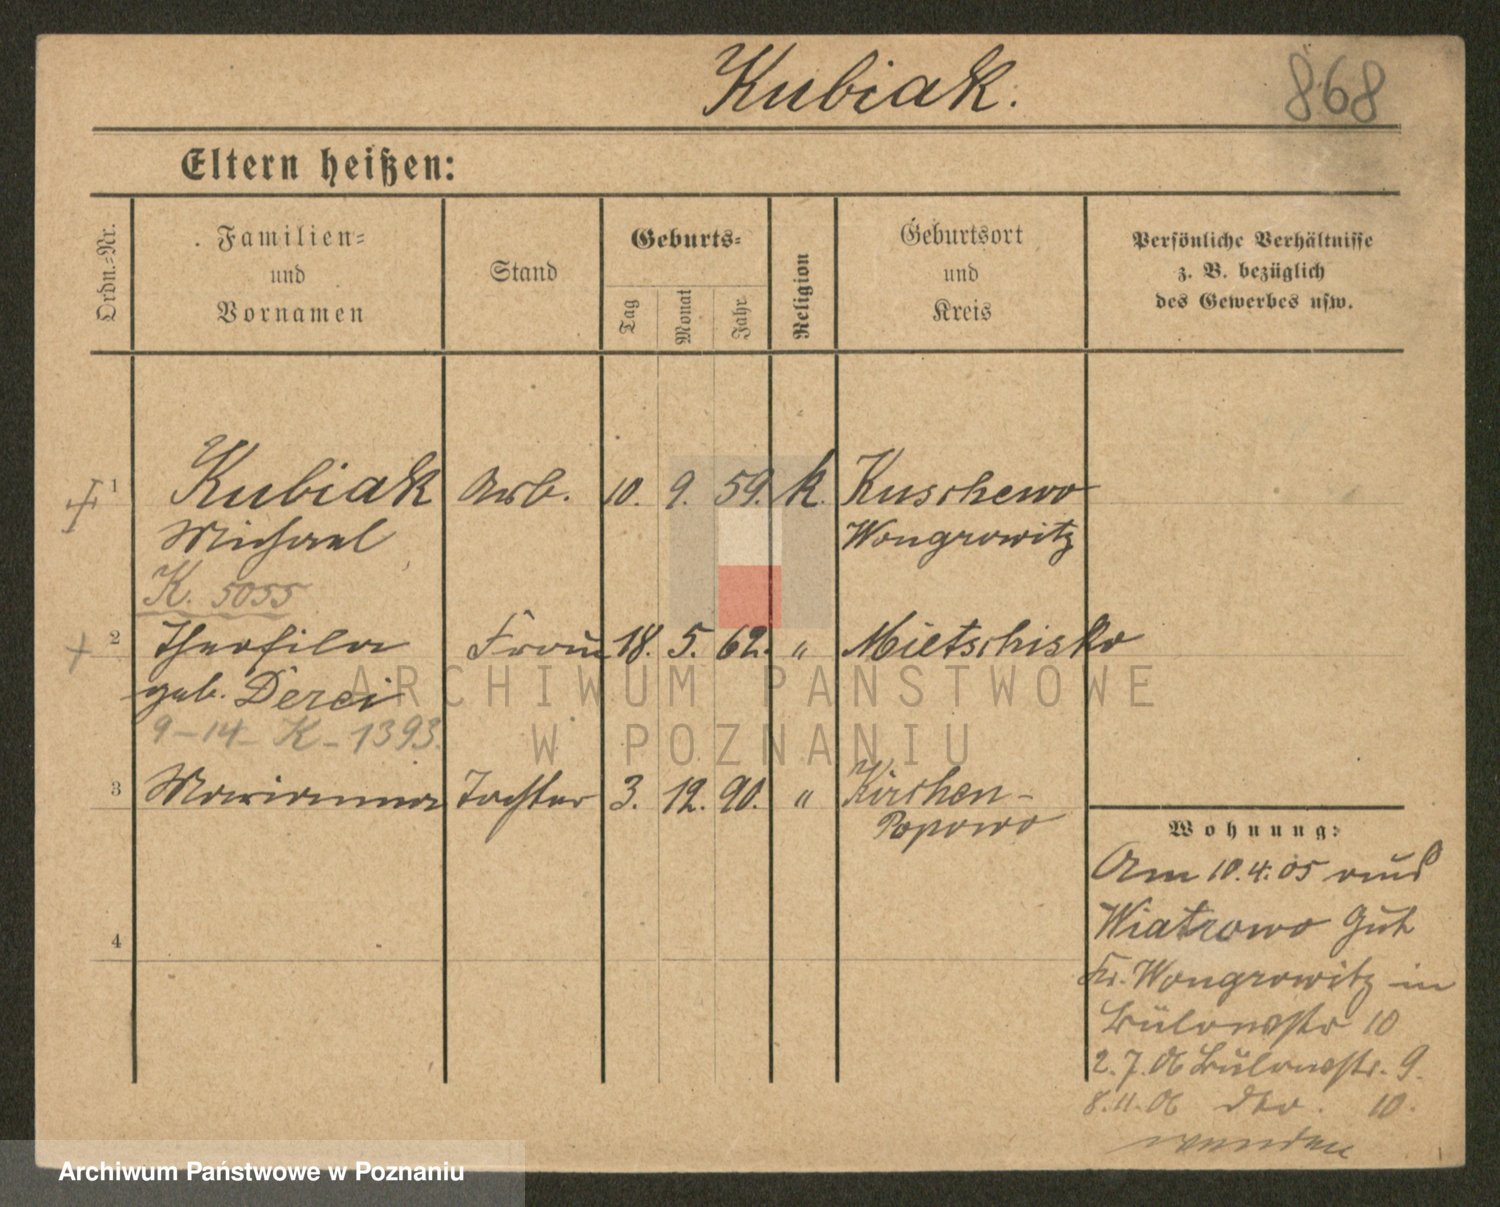 Kubiak.
868
Eltern heißen:
Ordn.-Nr.
Familien-
und
Vornamen
Stand
Geburts-
Tag
Monat
Jahr
Religion
Geburtsort
und
Kreis
Persönliche Verhältnisse
z. B. bezüglich
des Gewerbes usw.
1 Kubiak Arb. 10. 9. 59. k. Kuschewo
Michael Wongrowitz
K. 5055
2 Theofila Frau 18. 5. 62. " Mietschisko
geb. Derei
9-14- K-1393.
3 Marianna Tochter 3. 12. 90. " Kirchen-
Popowo
4
Wohnung:
Am 10.4.05 aus
Wiatrowo Gut
Kr. Wongrowitz in
Bülowstr 10
2.7.06 Bülowstr. 9.
8.11.06 dto. 10.
wenden
ARCHIWUM PAŃSTWOWE
W POZNANIU
Archiwum Państwowe w Poznaniu